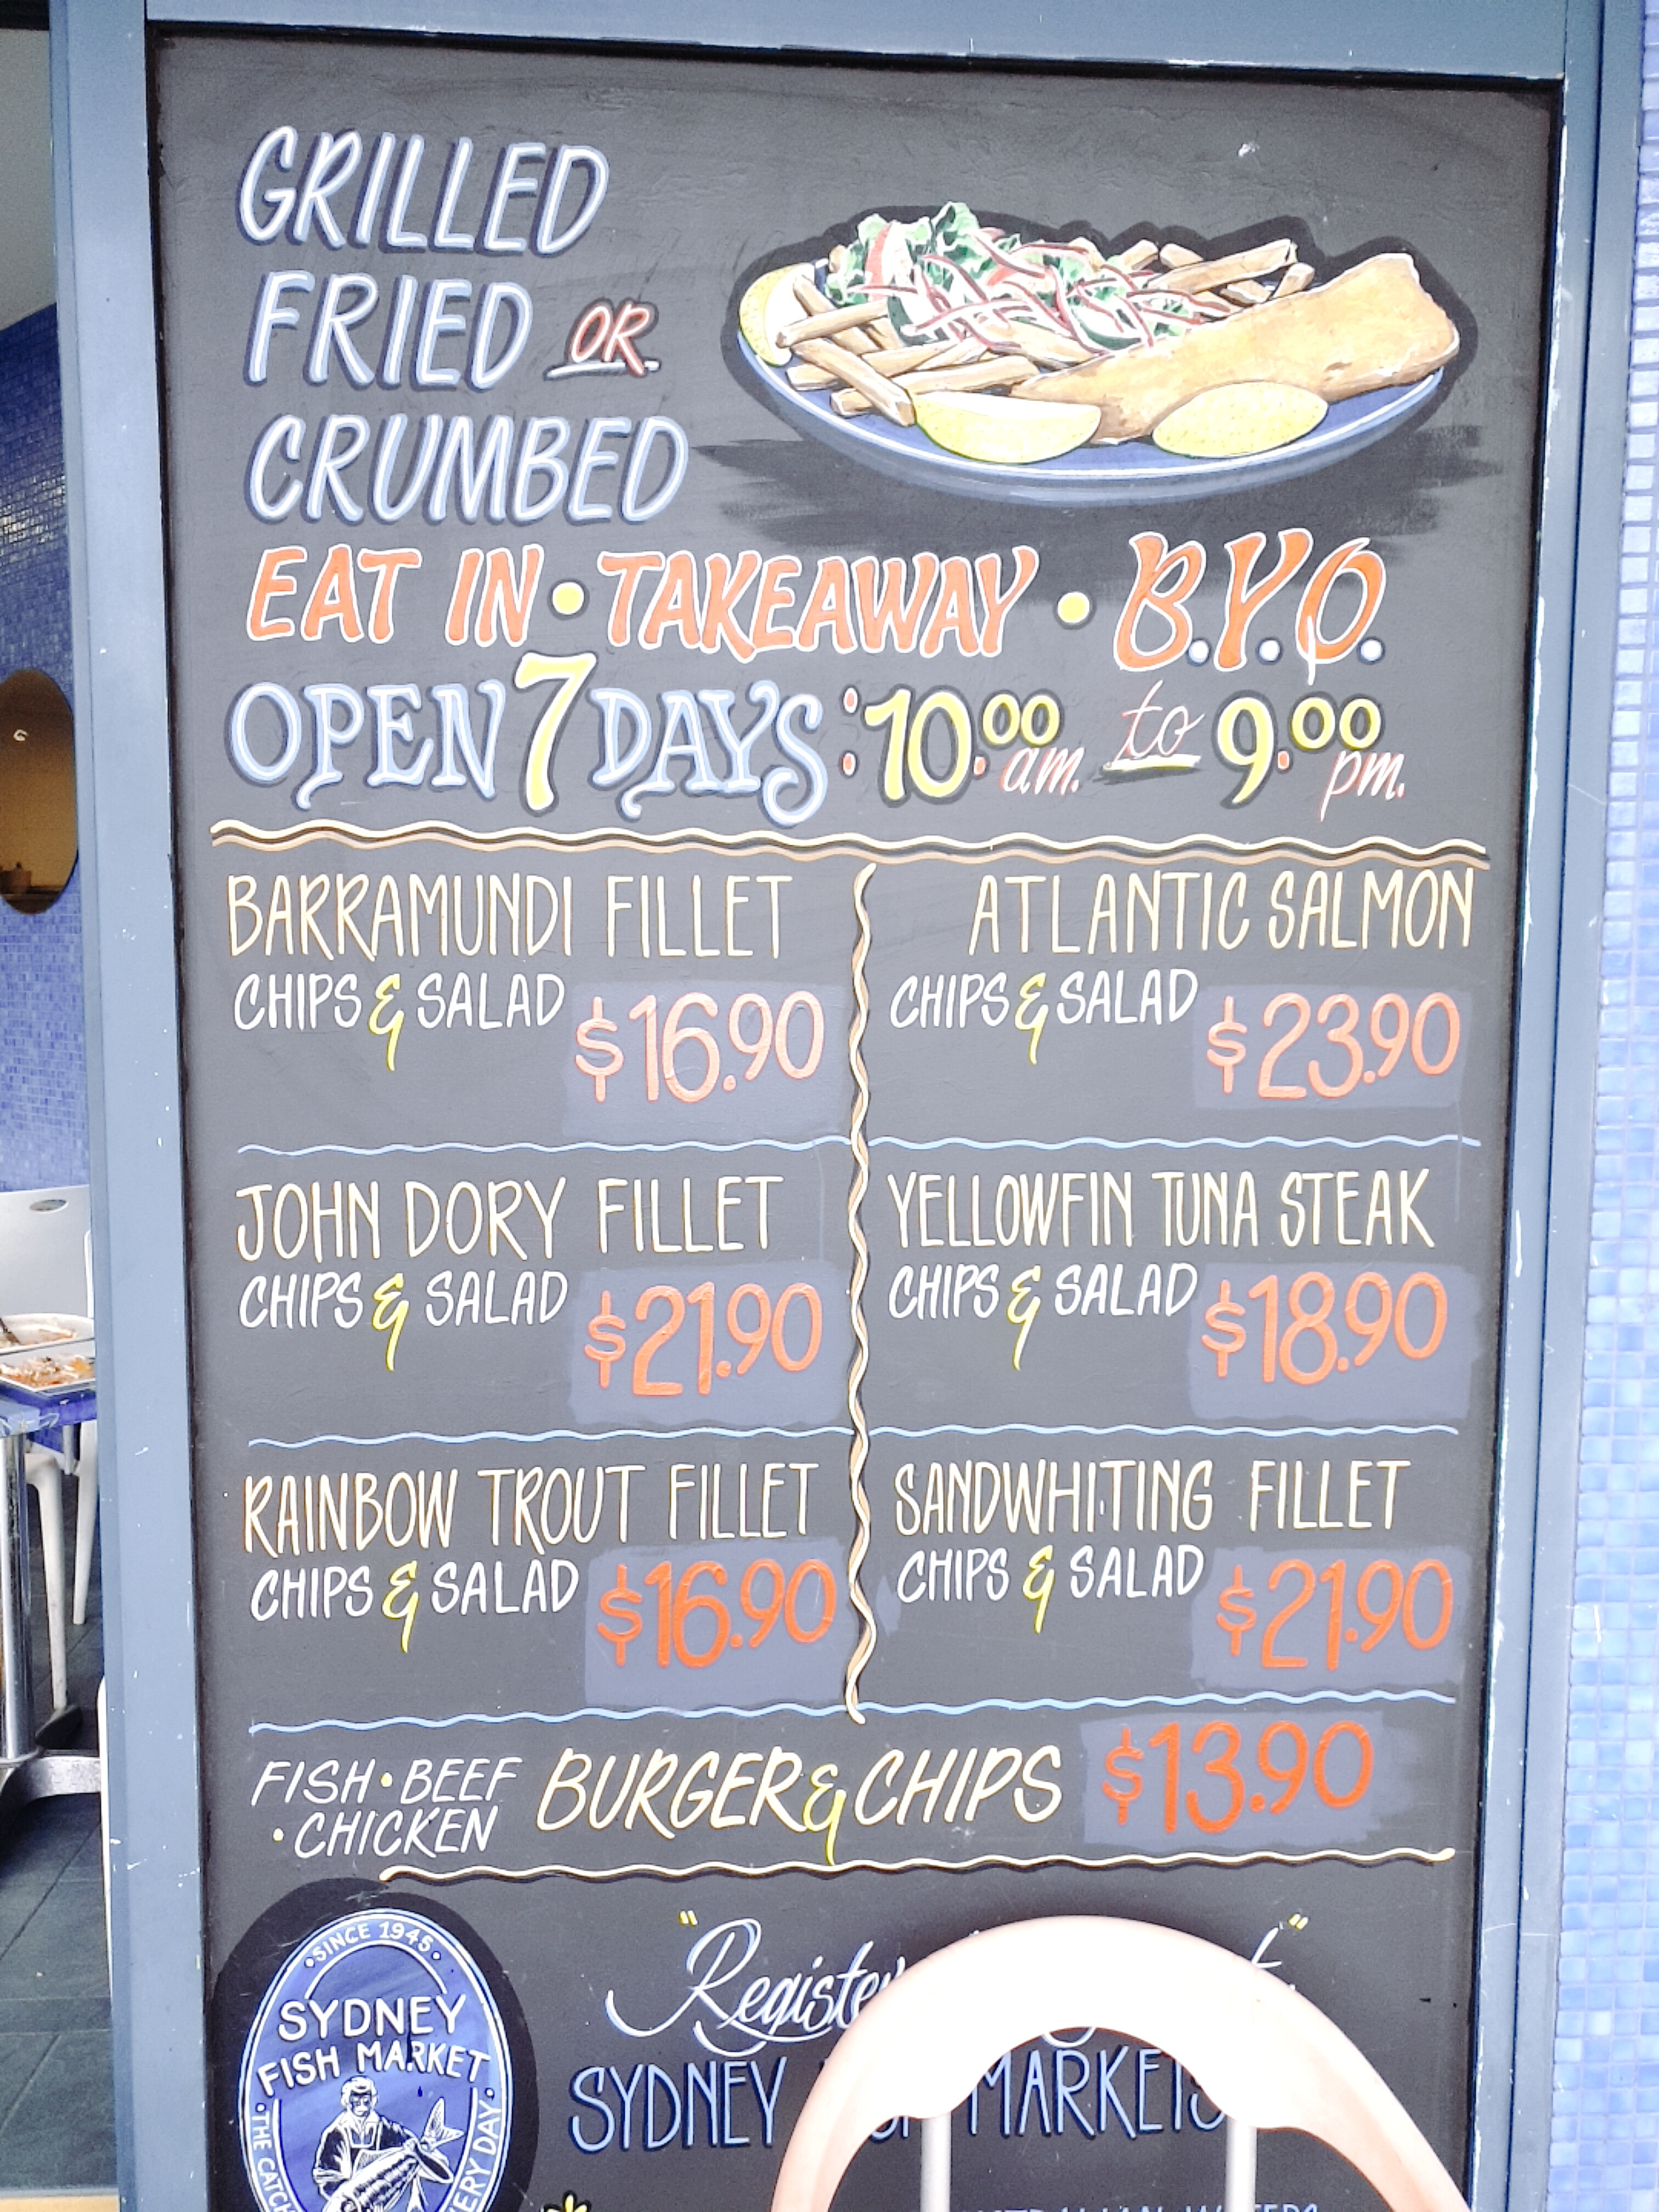 GRILLED
FRIED OR
CRUMBED
EAT IN • TAKEAWAY • B.Y.O.
OPEN 7 DAYS: 10.00 am. to 9.00 pm.
BARRAMUNDI FILLET
CHIPS & SALAD $16.90
ATLANTIC SALMON
CHIPS & SALAD $23.90
JOHN DORY FILLET
CHIPS & SALAD $21.90
YELLOWFIN TUNA STEAK
CHIPS & SALAD $18.90
RAINBOW TROUT FILLET
CHIPS & SALAD $16.90
SANDWHITING FILLET
CHIPS & SALAD $21.90
FISH • BEEF
• CHICKEN
BURGER & CHIPS $13.90
• SINCE 1945 •
SYDNEY
FISH MARKET
• THE CATCH
DAY •
SYDNEY MARKETS